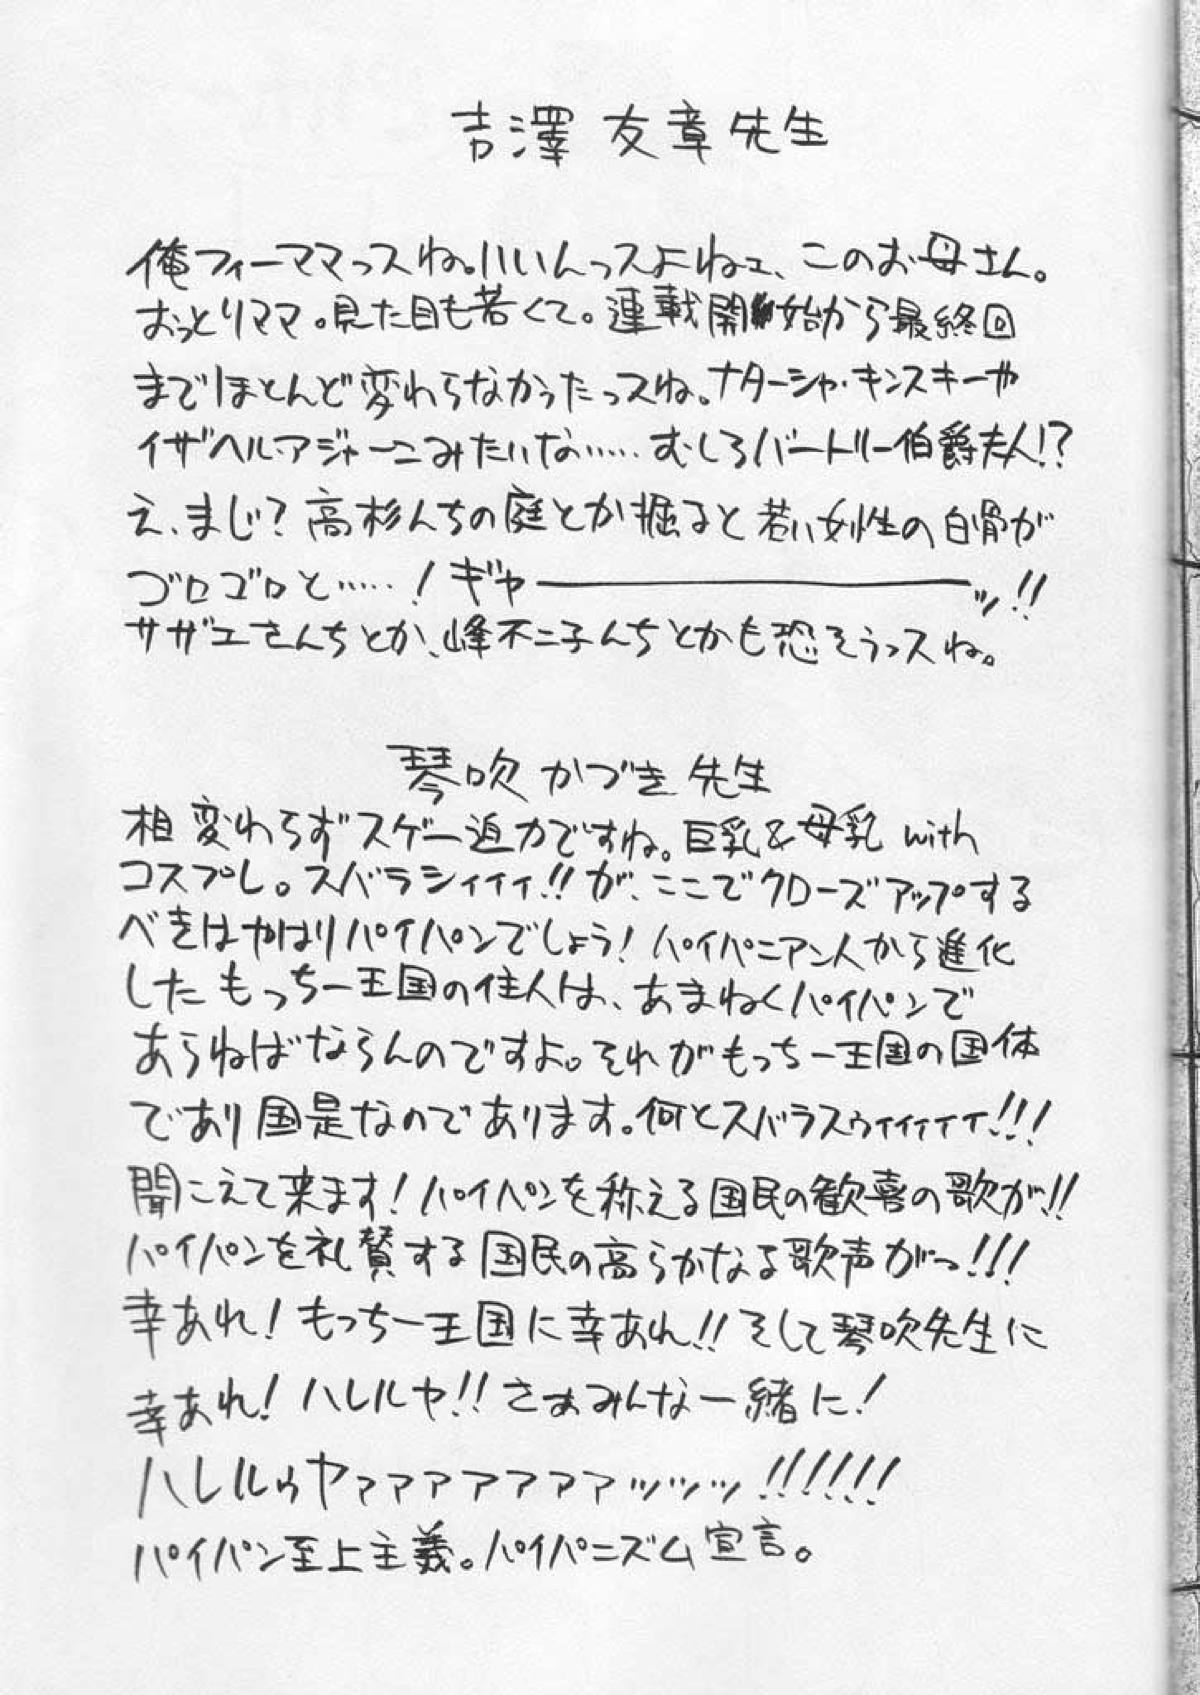 吉澤 友章先生
俺フィーママっスね。いいんっスよねェ、このお母さん。
おっとりママ。見た目も若くて。連載開始から最終回
までほとんど変わらなかったっスね。ナターシャ・キンスキーや
イザベル・アジャーニみたいな……むしろバートリー伯爵夫人!?
え、まじ?高杉んちの庭とか掘ると若い女性の白骨が
ゴロゴロと……!ギャ――――――――ッ!!
サザエさんちとか、峰不二子んちとかも恐そうっスね。
琴吹 かづき 先生
相変わらずスゲー迫力ですね。巨乳&母乳 with
コスプレ。スバラシィィィ!!が、ここでクローズアップする
べきはやはりパイパンでしょう!パイパニアン人から進化
したもっちー王国の住人は、あまねくパイパンで
あらねばならんのですよ。それがもっちー王国の国体
であり国是なのであります。何とスバラスゥィィィィィ!!!
聞こえて来ます!パイパンを称える国民の歓喜の歌が!!
パイパンを礼賛する国民の高らかなる歌声がっ!!!
幸あれ!もっちー王国に幸あれ!!そして琴吹先生に
幸あれ!ハレルヤ!!さぁみんな一緒に!
ハレルゥヤァァァァァァァッッッ!!!!!!
パイパン至上主義。パイパニズム宣言。